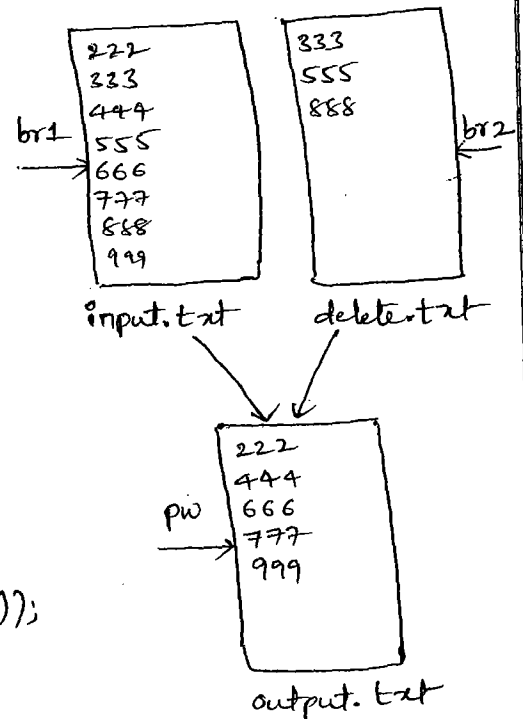 br1
222
333
444
555
666
777
888
999
input.txt
333
555
888
br2
delete.txt
pw
222
444
666
777
999
output.txt
));